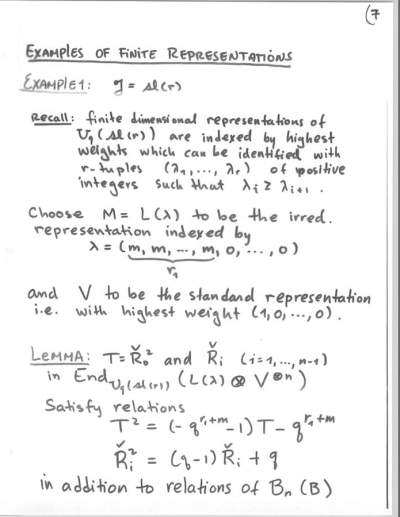 (7
EXAMPLES OF FINITE REPRESENTATIONS
EXAMPLE1: 𝔤 = sl(r)
Recall: finite dimensional representations of
U_q(sl(r)) are indexed by highest
weights which can be identified with
r-tuples (λ_1, ..., λ_r) of positive
integers such that λ_i ≥ λ_{i+1}.
Choose M = L(λ) to be the irred.
representation indexed by
λ = (m, m, ..., m, 0, ..., 0)
r_1
and V to be the standard representation
i.e. with highest weight (1,0,...,0).
LEMMA: T = Ř_0^2 and Ř_i (i=1,...,n-1)
in End_{U_q(sl(r))} (L(λ) ⊗ V^{⊗n})
Satisfy relations
T^2 = (-q^{r_1+m} - 1) T - q^{r_1+m}
Ř_i^2 = (q-1) Ř_i + q
in addition to relations of B_n (B)